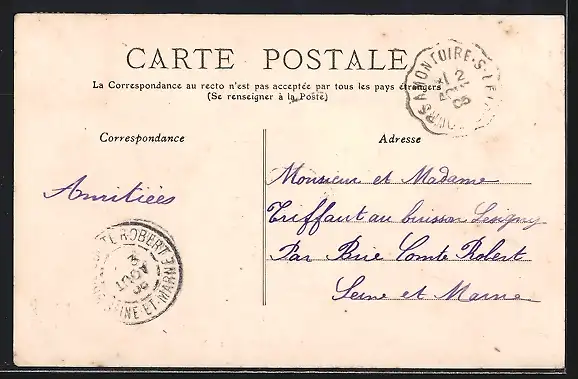 CARTE POSTALE
La Correspondance au recto n'est pas acceptée par tous les pays étrangers
(Se renseigner à la Poste)
Correspondance
Adresse
Amitiées
Monsieur et Madame
Triffaut au buisson Lésigny
Par Brie Comte Robert
Seine et Marne
TOURS A MONTOIRE-S-LE
2
AOUT
05
TE ROBERT
3
AOUT
05
SEINE-ET-MARNE